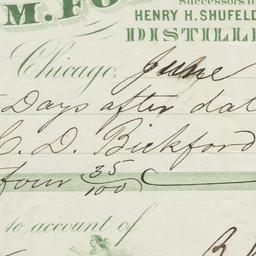 Successors to
M. FO
HENRY H. SHUFEL
DISTILLE
Chicago, June
Days after dat
C. D. Bickford
four 35/100
to account of
B